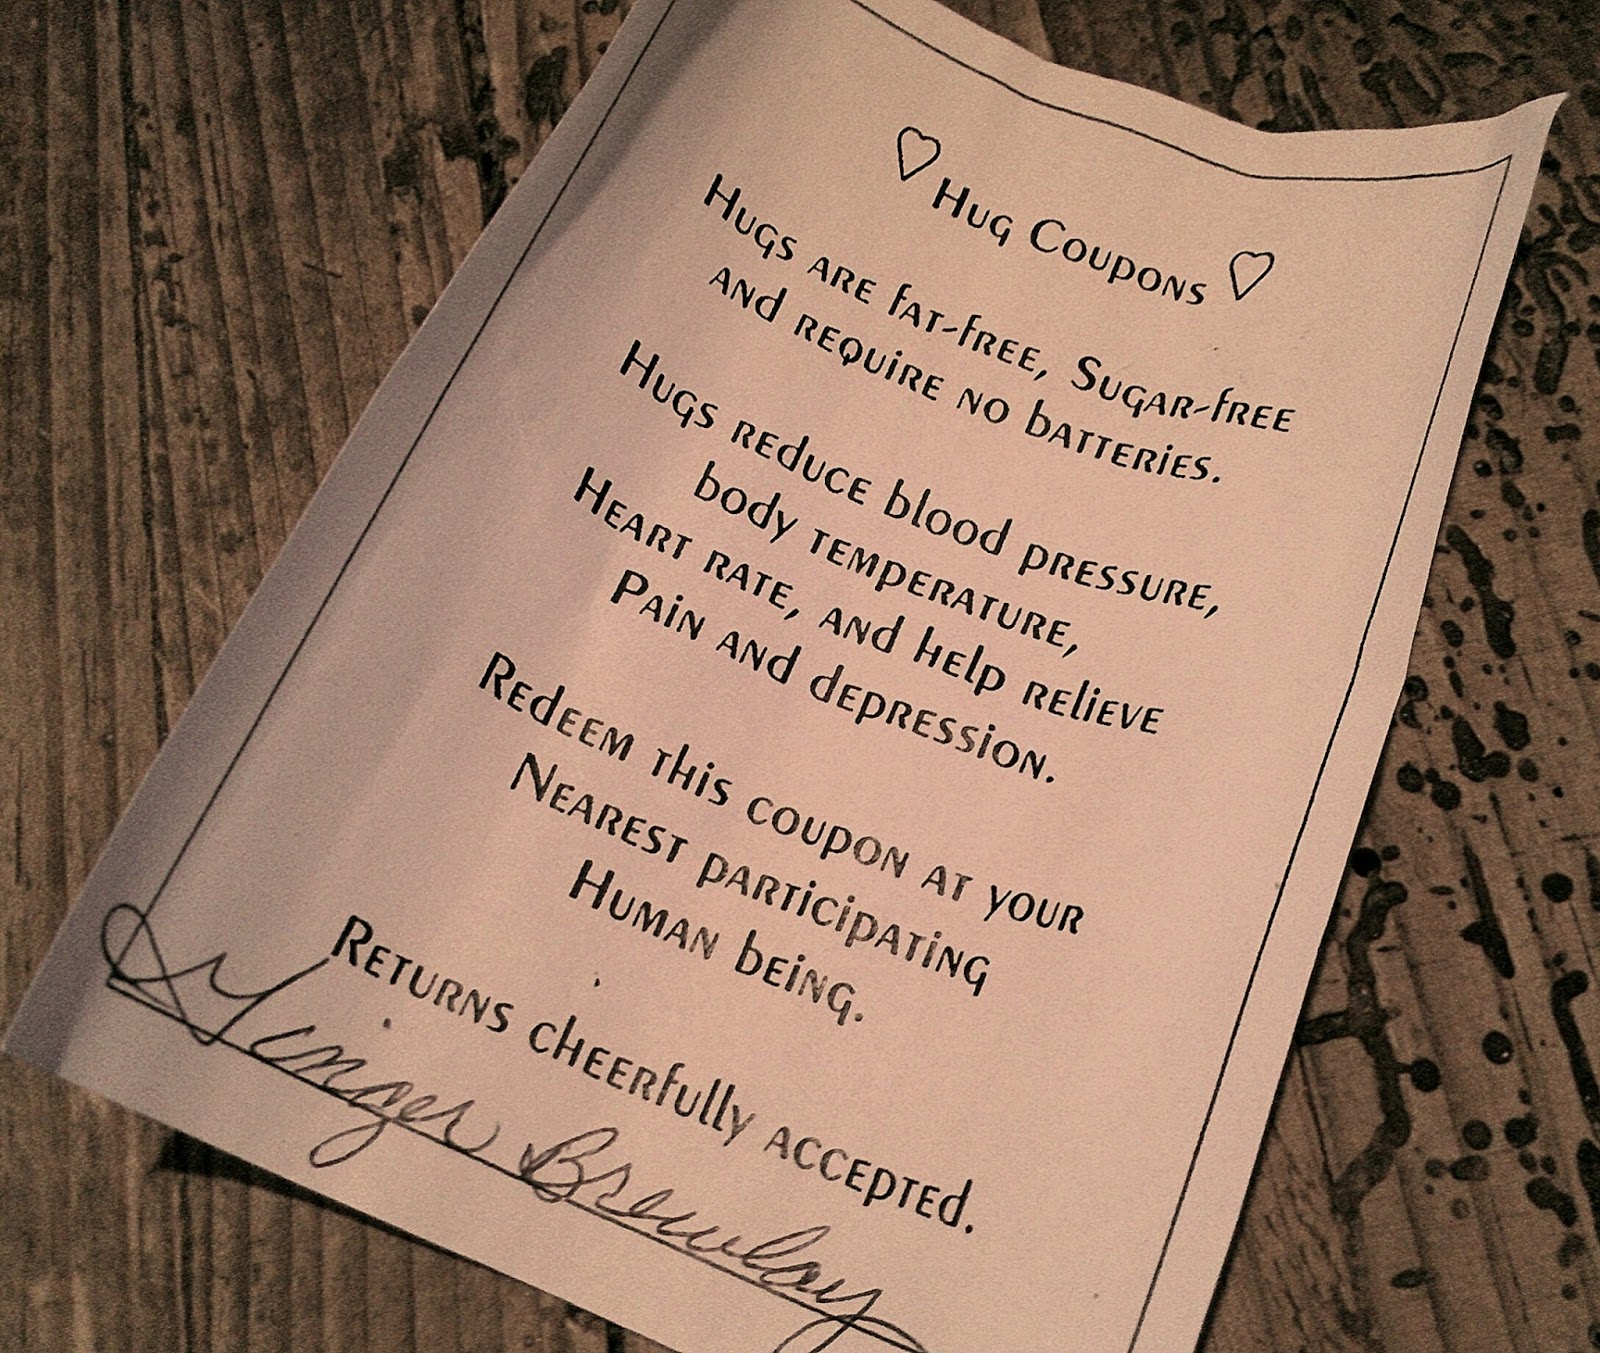 ♡ Hug Coupons ♡
Hugs are fat-free, Sugar-free
and require no batteries.
Hugs reduce blood pressure,
body temperature,
Heart rate, and help relieve
Pain and depression.
Redeem this coupon at your
Nearest participating
Human being.
Returns cheerfully accepted.
Ginger